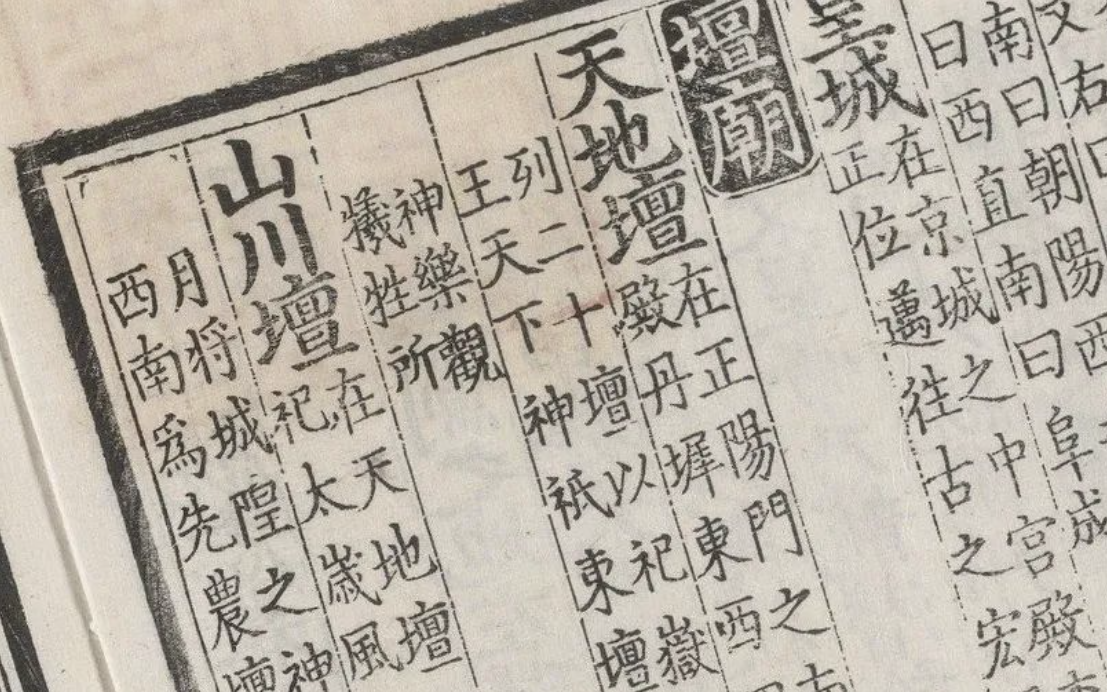 文右曰
南曰朝陽西
曰西直南曰阜成
皇城
在京城之中宮殿
正位邁往古之宏
壇廟
天地壇
在正陽門之南
殿丹墀東西
列二十壇以祀嶽
王天下神祇東壇
神樂觀
犧牲所
山川壇
在天地壇
祀太歲風
月將城隍之神
西南爲先農壇